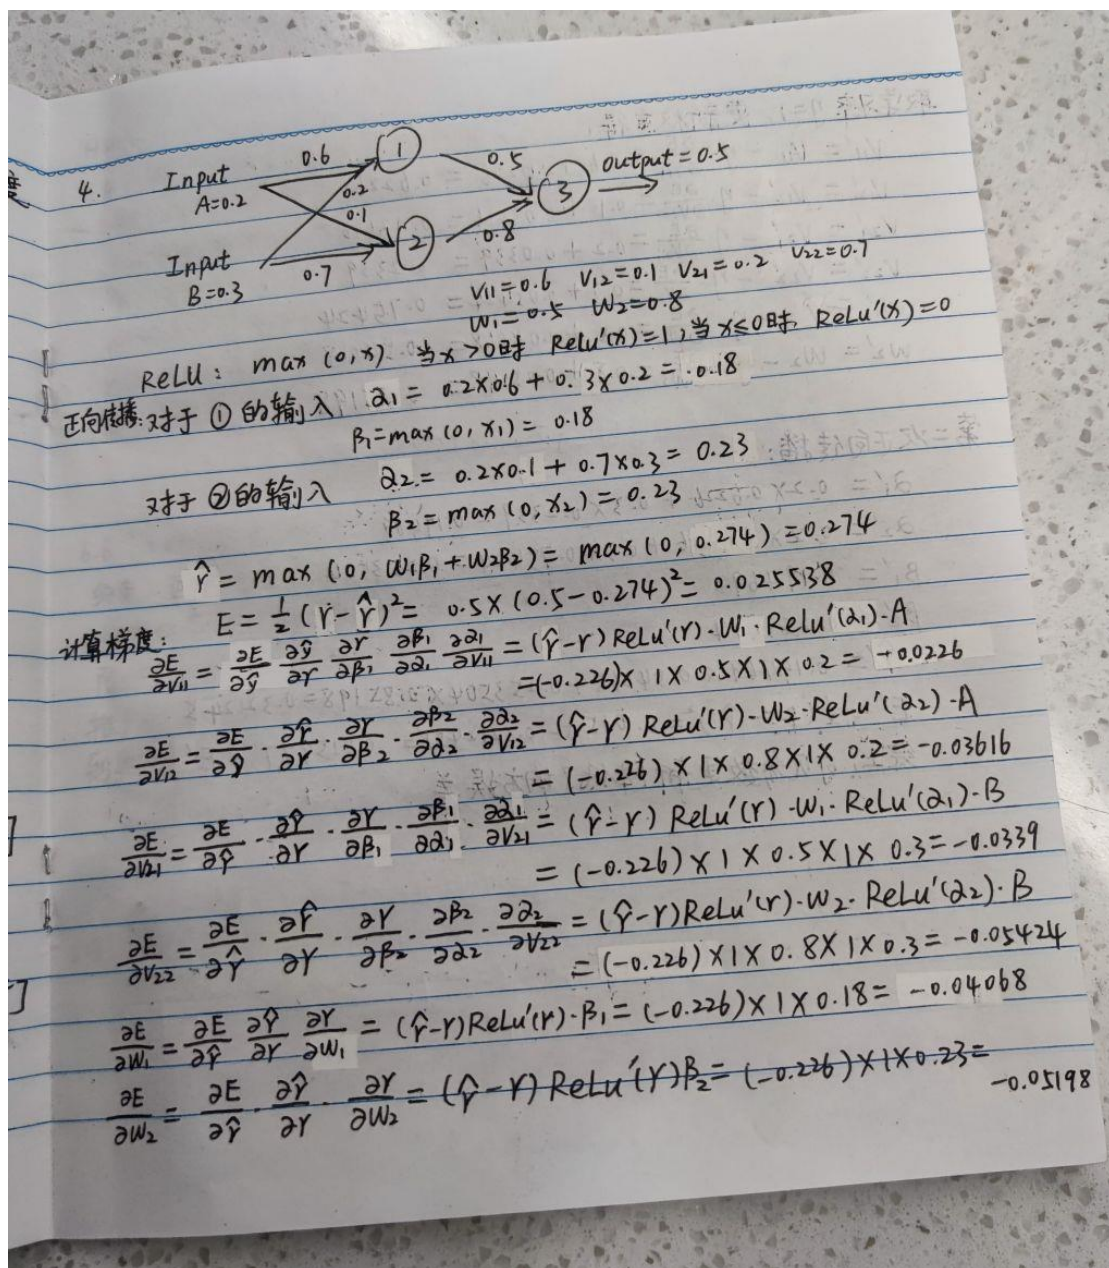 4.
Input
A=0.2
0.6
1
0.5
output = 0.5
0.2
0.1
3
2
0.8
Input
B=0.3
0.7
V11=0.6 V12=0.1 V21=0.2 V22=0.7
W1=0.5 W2=0.8
ReLU: max (0,x) 当x>0时 Relu'(x)=1, 当x≤0时, ReLu'(x)=0
正向传播:对于①的输入 α1 = 0.2×0.6 + 0.3×0.2 = 0.18
β1=max (0, x1) = 0.18
对于②的输入 α2 = 0.2×0.1 + 0.7×0.3 = 0.23
β2 = max (0, x2) = 0.23
Ŷ = max (0, W1β1 + W2β2) = max (0, 0.274) = 0.274
E = 1/2 (Y-Ŷ)² = 0.5×(0.5-0.274)² = 0.025538
计算梯度:
∂E/∂V11 = ∂E/∂ŷ ∂ŷ/∂Y ∂Y/∂β1 ∂β1/∂α1 ∂α1/∂V11 = (Ŷ-Y) ReLu'(Y)·W1·Relu'(α1)·A
=(-0.226)× 1×0.5×1×0.2 = -0.0226
∂E/∂V12 = ∂E/∂ŷ · ∂Ŷ/∂Y · ∂Y/∂β2 · ∂β2/∂α2 · ∂α2/∂V12 = (Ŷ-Y) ReLu'(Y)·W2·ReLu'(α2)·A
= (-0.226)×1×0.8×1×0.2 = -0.03616
∂E/∂V21 = ∂E/∂Ŷ · ∂Ŷ/∂Y · ∂Y/∂β1 · ∂β1/∂α1 · ∂α1/∂V21 = (Ŷ-Y) ReLu'(Y)·W1·ReLu'(α1)·B
= (-0.226)×1×0.5×1×0.3=-0.0339
∂E/∂V22 = ∂E/∂Ŷ · ∂Ŷ/∂Y · ∂Y/∂β2 · ∂β2/∂α2 · ∂α2/∂V22 = (Ŷ-Y)ReLu'(Y)·W2·ReLu'(α2)·B
= (-0.226)×1×0.8×1×0.3=-0.05424
∂E/∂W1 = ∂E/∂Ŷ ∂Ŷ/∂Y ∂Y/∂W1 = (Ŷ-Y)ReLu'(Y)·β1 = (-0.226)×1×0.18= -0.04068
∂E/∂W2 = ∂E/∂Ŷ · ∂Ŷ/∂Y · ∂Y/∂W2 = (Ŷ-Y) ReLu'(Y)β2 = (-0.226)×1×0.23=
-0.05198